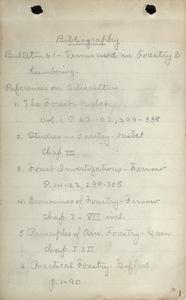 Bibliography.
Bulletin 61 - Terms used in Forestry &
Lumbering.
References on Silviculture.
1. The Forest - Nisbet
Vol. P. 67-102, 299-338
2. Studies in Forestry - Nisbet
Chap. III
3. Forest Investigations - Fernow
P. 14-22, 299-305
4. Economics of Forestry - Fernow
Chap. I - VII incl.
5. Principles of Am. Forestry - Green
Chap. I & II
6. Practical Forestry - Gifford
p. 1-90